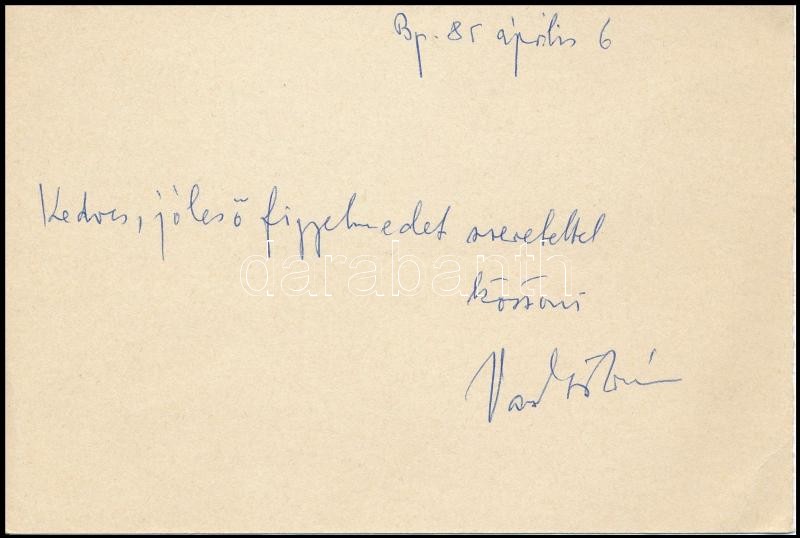 Bp. 85 április 6
Kedves, jóleső figyelmedet szeretettel
köszöni
Vas István
darabanth